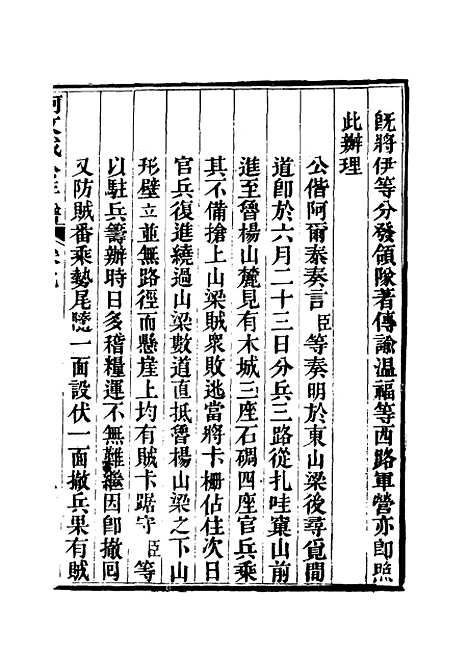 既將伊等分發領隊著傳諭温福等西路軍營亦即照
此辦理
公偕阿爾泰奏言臣等奏明於東山梁後尋覓間
道即於六月二十三日分兵三路從扎哇窠山前
進至魯楊山麓見有木城三座石碉四座官兵乘
其不備搶上山梁賊衆敗逃當將卡柵佔住次日
官兵復進繞過山梁數道直抵魯楊山梁之下山
形壁立並無路徑而懸崖上均有賊卡踞守臣等
以駐兵籌辦時日多稽糧運不無難繼因即撤回
又防賊番乘勢尾隨一面設伏一面撤兵果有賊
阿文成公年譜